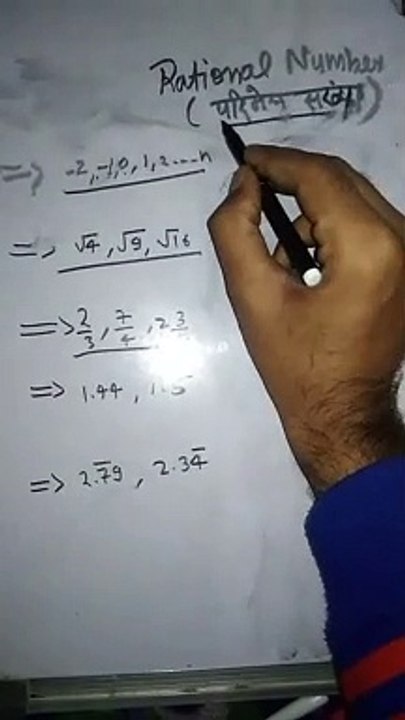 Rational Number
(परिमेय संख्या)
=> -2, -1, 0, 1, 2 ---- n
=> √4, √9, √16
=> 2/3, 7/4, 2 3/
=> 1.44,
=> 2.7̅9, 2.34̅